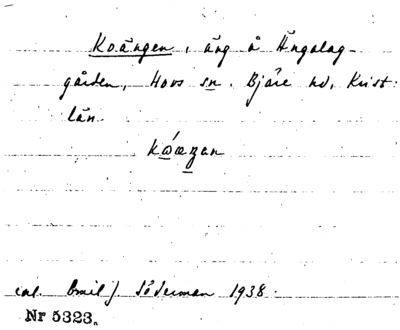 Koängen, äng å Ängalag-
gården, Hovs sn. Bjäre hd, Krist.
län.
Emil J. Söderman 1938.
Nr 5323.